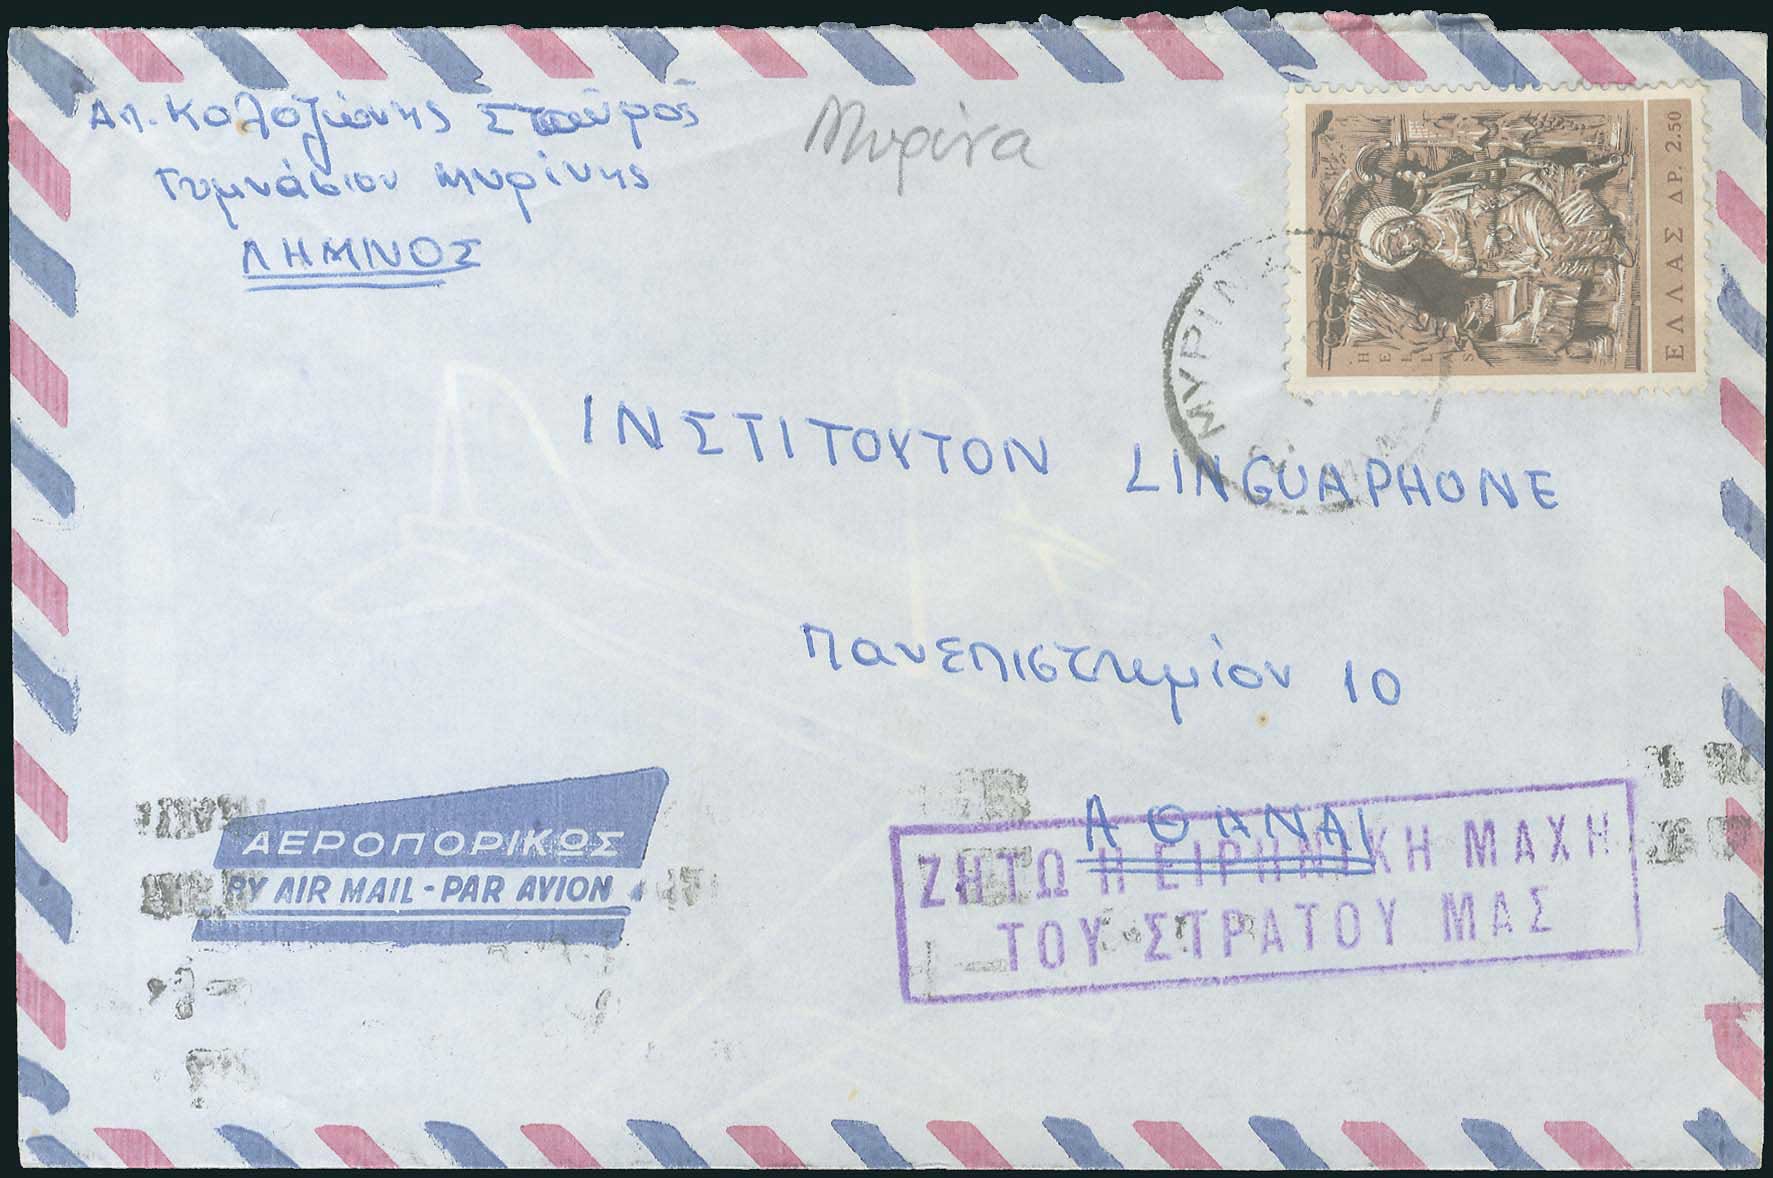 Απ. Κολοζιώνης Σταύρος
Γυμνάσιον Μυρίνης
ΛΗΜΝΟΣ
Μυρίνα
ΕΛΛΑΣ ΔΡ. 2.50
HELLAS
ΜΥΡΙΝΑ
ΙΝΣΤΙΤΟΥΤΟΝ LINGUAPHONE
Πανεπιστημίου 10
ΑΘΗΝΑΙ
ΖΗΤΩ Η ΕΙΡΗΝΙΚΗ ΜΑΧΗ
ΤΟΥ ΣΤΡΑΤΟΥ ΜΑΣ
ΑΕΡΟΠΟΡΙΚΩΣ
BY AIR MAIL - PAR AVION